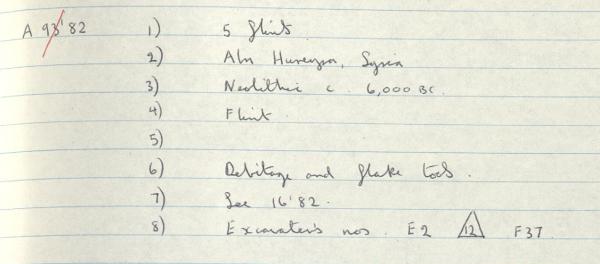 A 93'82 1) 5 flints
2) Abu Hureyra, Syria
3) Neolithic c. 6,000 BC.
4) Flint.
5)
6) Debitage and flake tools.
7) See 16'82.
8) Excavater's nos. E2 12 F37